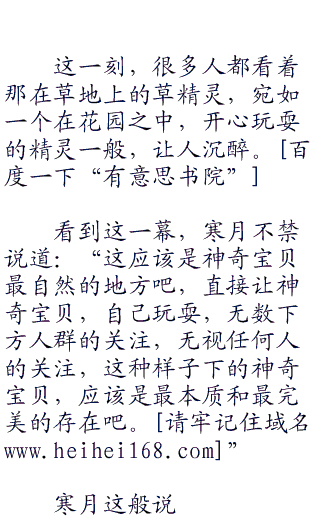 这一刻，很多人都看着
那在草地上的草精灵，宛如
一个在花园之中，开心玩耍
的精灵一般，让人沉醉。[百
度一下“有意思书院”]
看到这一幕，寒月不禁
说道：“这应该是神奇宝贝
最自然的地方吧，直接让神
奇宝贝，自己玩耍，无数下
方人群的关注，无视任何人
的关注，这种样子下的神奇
宝贝，应该是最本质和最完
美的存在吧。[请牢记住域名
www.heihei168.com]”
寒月这般说